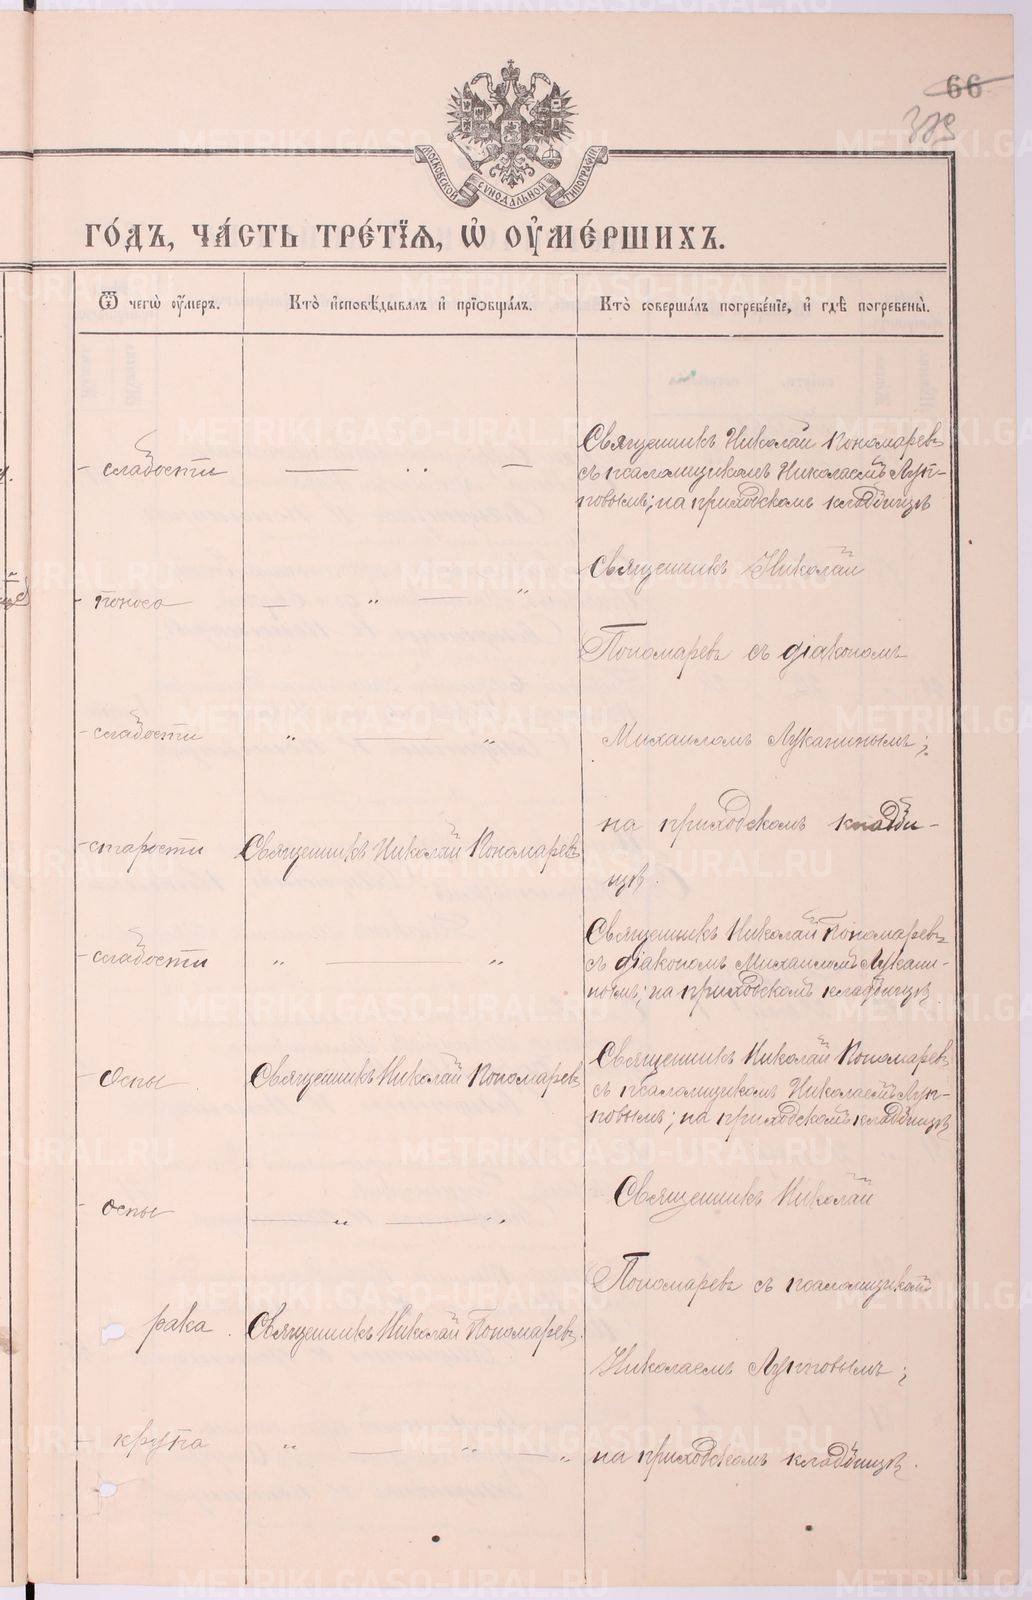 66
МОСКОВСКОЙ СУНОДАЛЬНОЙ ТИПОГРАФІИ
ГО́ДЪ, ЧА́СТЬ ТРЕ́ТІЯ, Ѡ ОУ҆МЕ́РШИХЪ.
Ѿ чегѡ̀ оу҆́меръ.
Кто̀ и҆сповѣ́дывалъ и҆ прїѡбща́лъ.
Кто̀ соверша́лъ погребе́нїе, и҆ гдѣ̀ погребены̀.
- слабости
— ‥ —
Священникъ Николай Пономаревъ
съ псаломщикомъ Николаемъ Луп-
повымъ; на приходскомъ кладбищѣ
- поноса
— " — "
Священникъ Николай
Пономаревъ съ діакономъ
- слабости
" — "
Михаиломъ Луканинымъ;
на приходскомъ кладби-
щѣ.
- старости
Священникъ Николай Пономаревъ
- слабости
" — "
Священникъ Николай Пономаревъ
съ діакономъ Михаиломъ Лукани-
нымъ; на приходскомъ кладбищѣ.
- Оспы
Священникъ Николай Пономаревъ
Священникъ Николай Пономаревъ
съ псаломщикомъ Николаемъ Луп-
повымъ; на приходскомъ кладбищѣ
- оспы
— " — "
Священникъ Николай
Пономаревъ съ псаломщикомъ
рака.
Священникъ Николай Пономаревъ.
Николаемъ Лупповымъ;
- крупа
" — " — "
на приходскомъ кладбищѣ.
METRIKI.GASO-URAL.RU